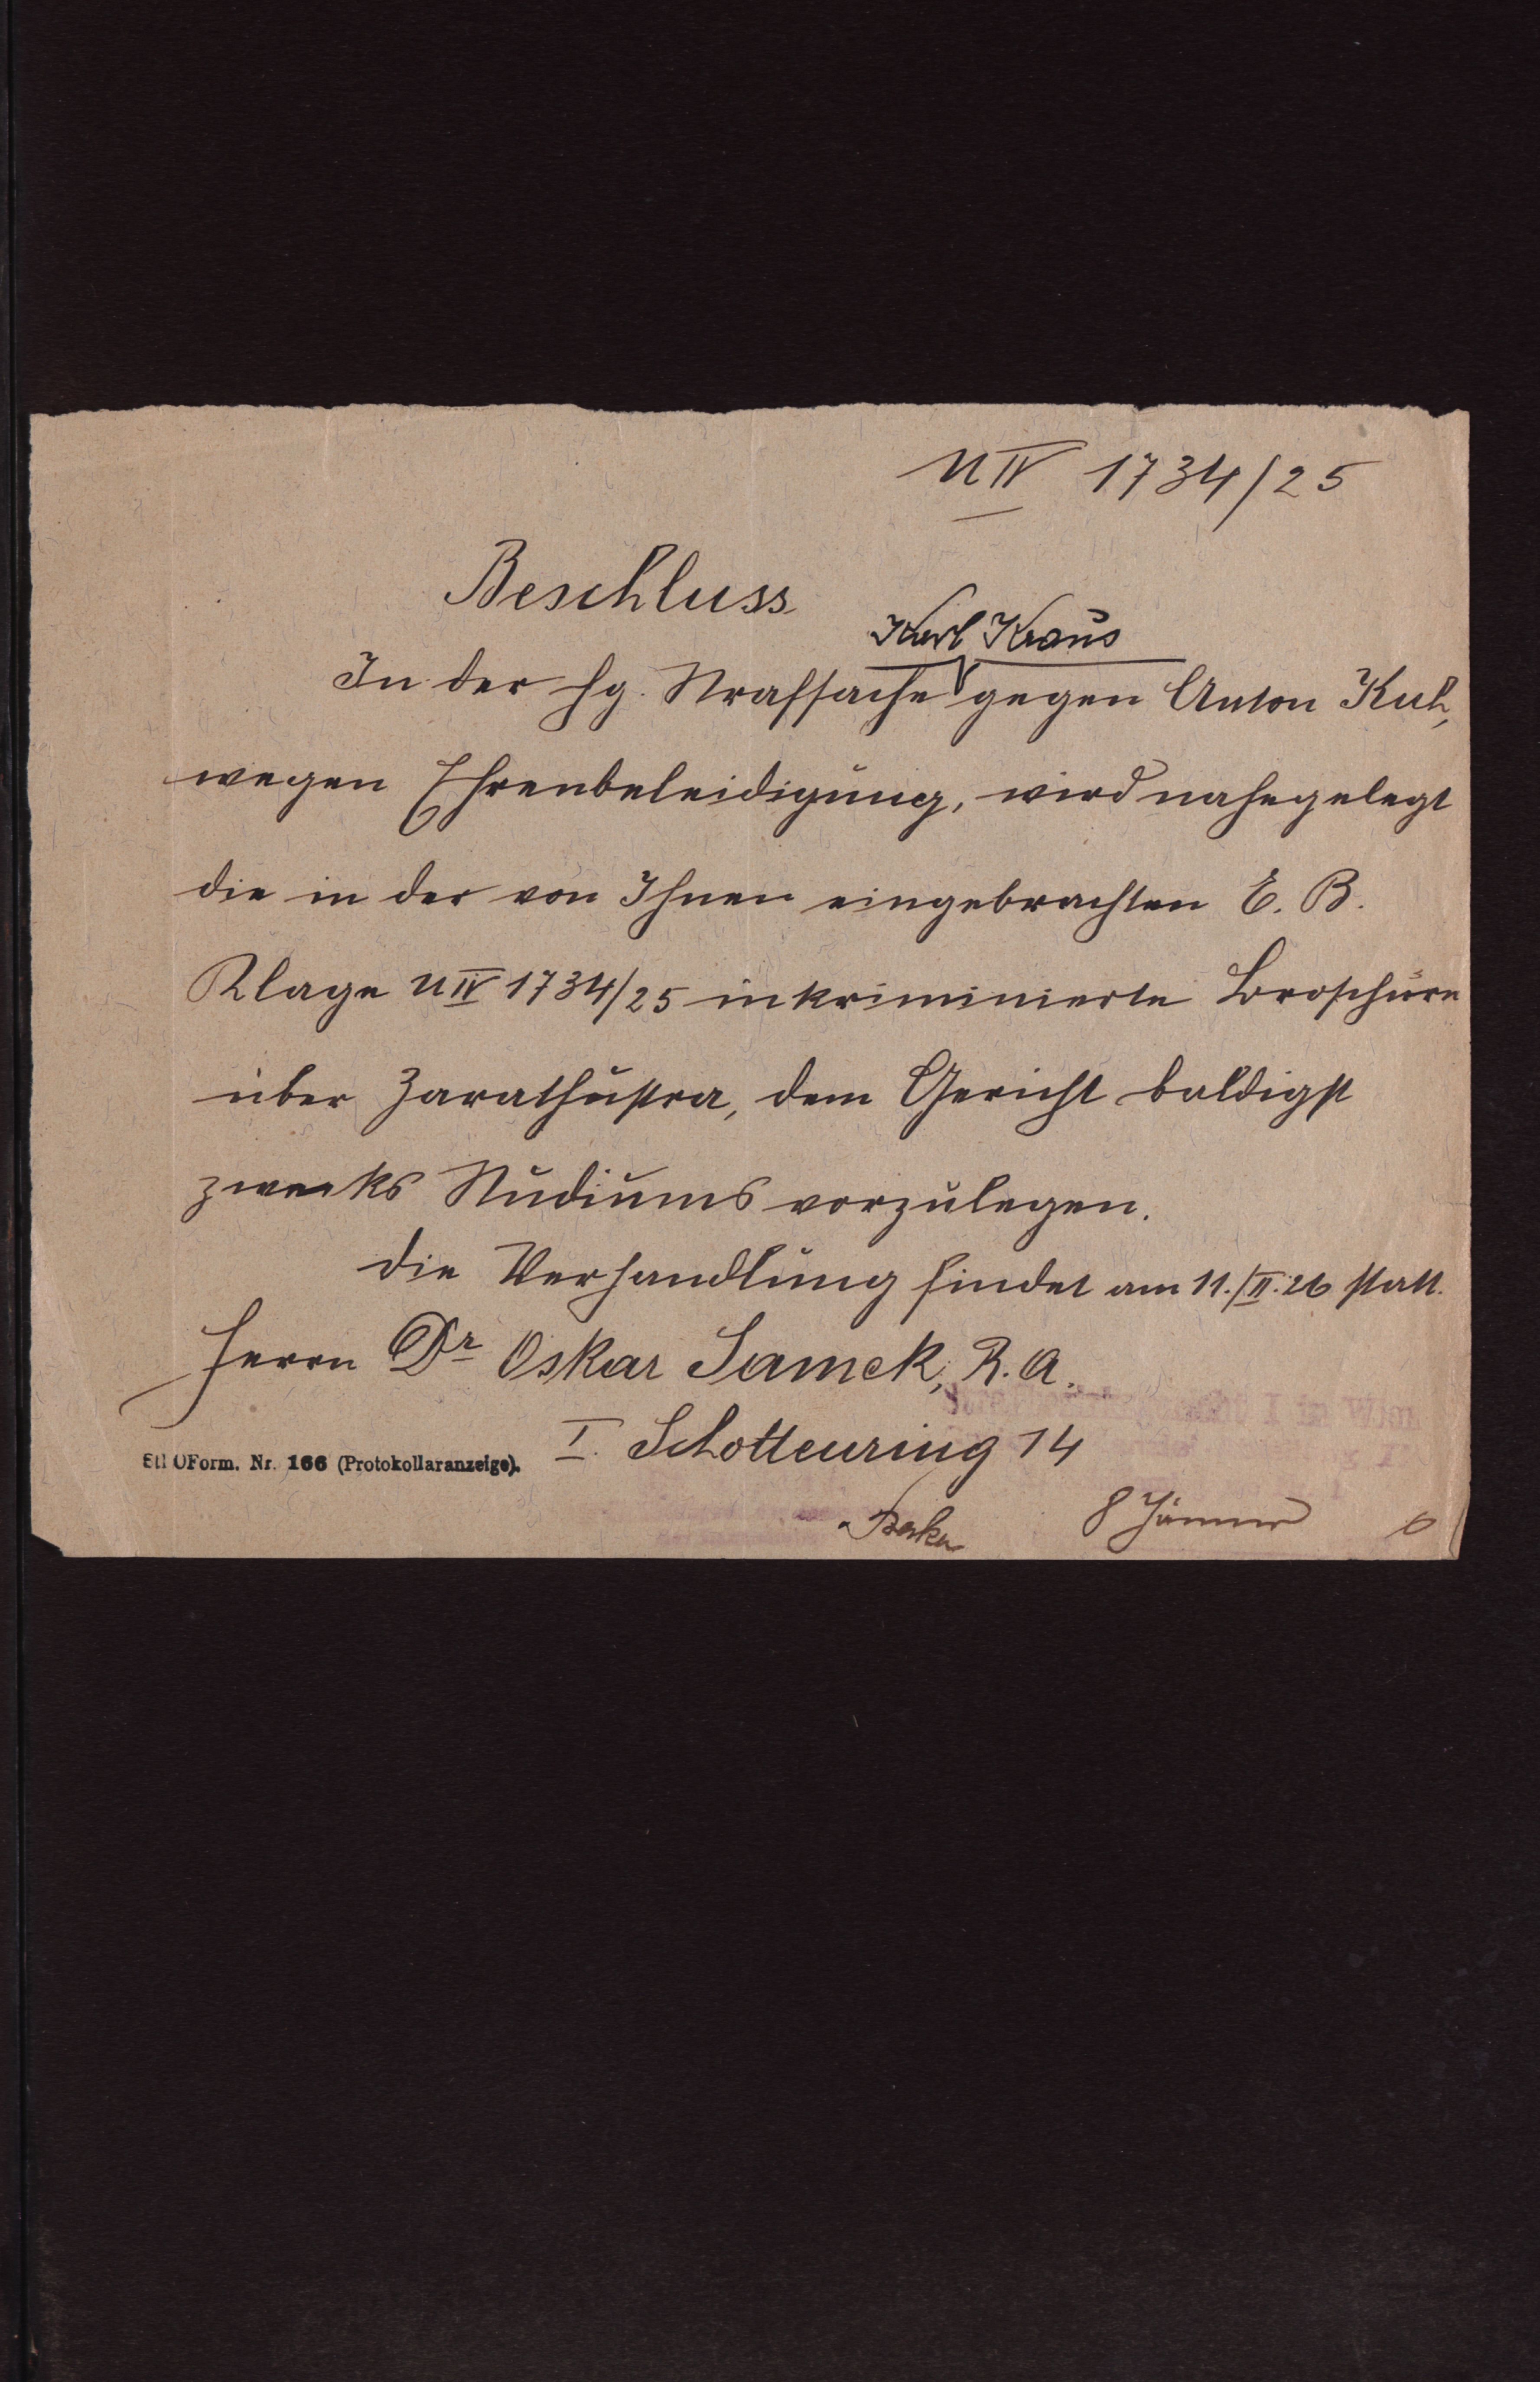 U IV 1734/25
Beschluss
Karl Kraus
In der hg. Strafsache gegen Anton Kuh,
wegen Ehrenbeleidigung, wird nahegelegt
die in der von Ihnen eingebrachten E. B.
Klage U IV 1734/25 inkriminierte Broschüre
über Zarathustra, dem Gericht baldigst
zwecks Studiums vorzulegen.
Die Verhandlung findet am 11./II.26 statt.
Herrn Dr Oskar Samek, R. A.
I. Schottenring 14
StPOForm. Nr. 166 (Protokollaranzeige).
8 Jänner 6